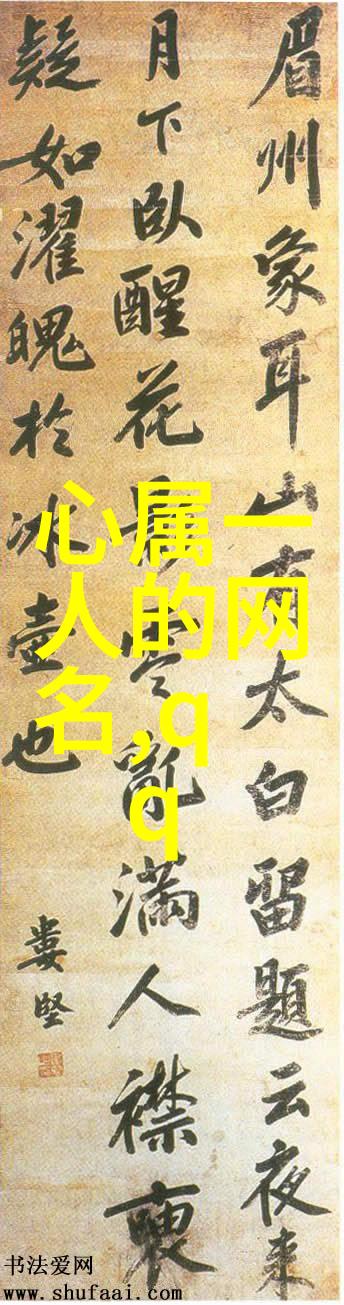 眉州象耳山有太白留題云夜来
月下臥醒花影零亂滿人襟褏
疑如濯魄於冰壺也
婁堅
心属一
人的网
名,q
q
书法爱网
www.shufaai.com